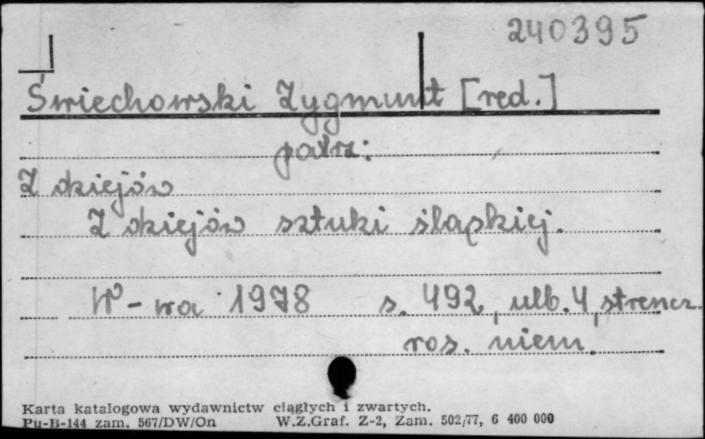 240395
Świechowski Zygmunt [red.]
patrz:
Z dziejów
Z dziejów sztuki śląskiej.
W-wa 1978 s. 492, ulb. 4, streszcz.
ros. niem.
Karta katalogowa wydawnictw ciągłych i zwartych.
Pu-B-144 zam. 567/DW/On W.Z.Graf. Z-2, Zam. 502/77, 6 400 000